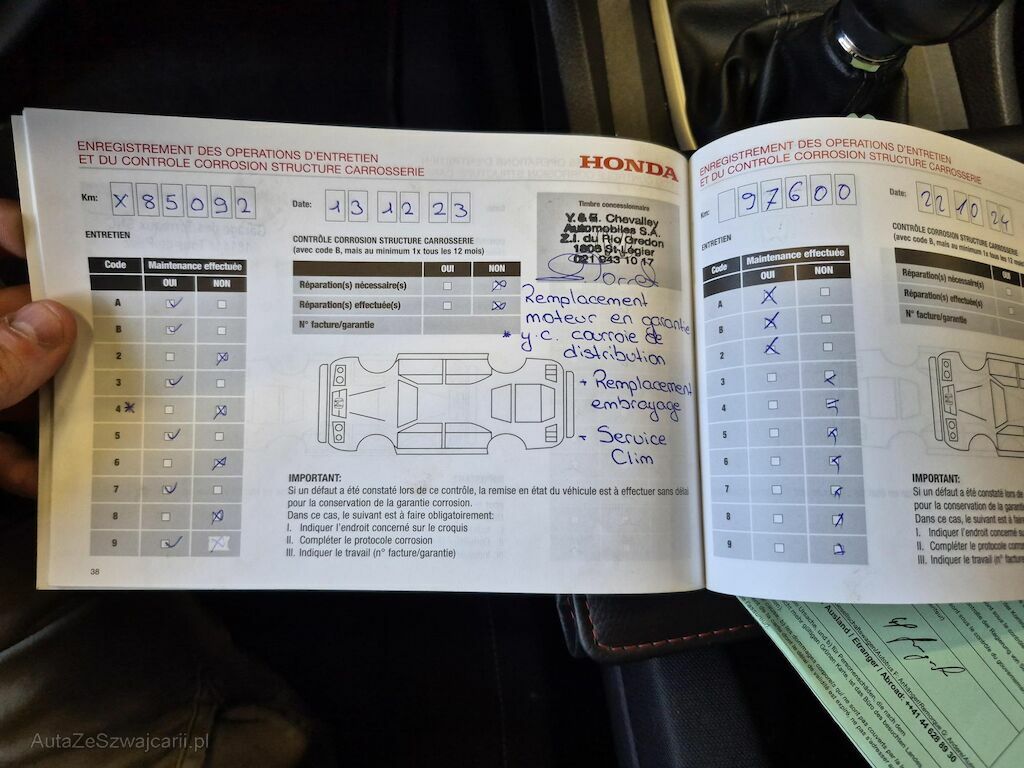 ENREGISTREMENT DES OPERATIONS D'ENTRETIEN
ET DU CONTROLE CORROSION STRUCTURE CARROSSERIE
HONDA
Km: X 85092
Date: 13 12 23
Timbre concessionnaire
Y. & E. Chevalley
Automobiles S.A.
Z.I. du Rio Gredon
1806 St-Légier
021 943 10 17
ENTRETIEN
CONTRÔLE CORROSION STRUCTURE CARROSSERIE
(avec code B, mais au minimum 1x tous les 12 mois)
Code Maintenance effectuée
OUI NON
A
B
2
3
4*
5
6
7
8
9
OUI NON
Réparation(s) nécessaire(s)
Réparation(s) effectuée(s)
N° facture/garantie
Remplacement
moteur en garantie
* y.c. courroie de
distribution
+ Remplacement
embrayage
+ Service
Clim
IMPORTANT:
Si un défaut a été constaté lors de ce contrôle, la remise en état du véhicule est à effectuer sans délai
pour la conservation de la garantie corrosion.
Dans ce cas, le suivant est à faire obligatoirement:
I. Indiquer l'endroit concerné sur le croquis
II. Compléter le protocole corrosion
III. Indiquer le travail (n° facture/garantie)
38
ENREGISTREMENT DES OPERATIONS D'ENTRETIEN
ET DU CONTROLE CORROSION STRUCTURE CARROSSERIE
Km: 97600
Date: 22 10 24
ENTRETIEN
CONTRÔLE CORROSION STRUCTURE CARROSSERIE
(avec code B, mais au minimum 1x tous les 12 mois
Code Maintenance effectuée
OUI NON
A
B
2
3
4
5
6
7
8
9
OUI
Réparation(s) nécessaire(s)
Réparation(s) effectuée(s)
N° facture/garantie
IMPORTANT:
Si un défaut a été constaté
pour la conservation de la
Dans ce cas, le suivant est
I. Indiquer l'endroit concerné
II. Compléter le protocole
III. Indiquer le travail (n° facture
Ausland / Etranger / Abroad: ++41 44 628 89 30
AutaZeSzwajcarii.pl